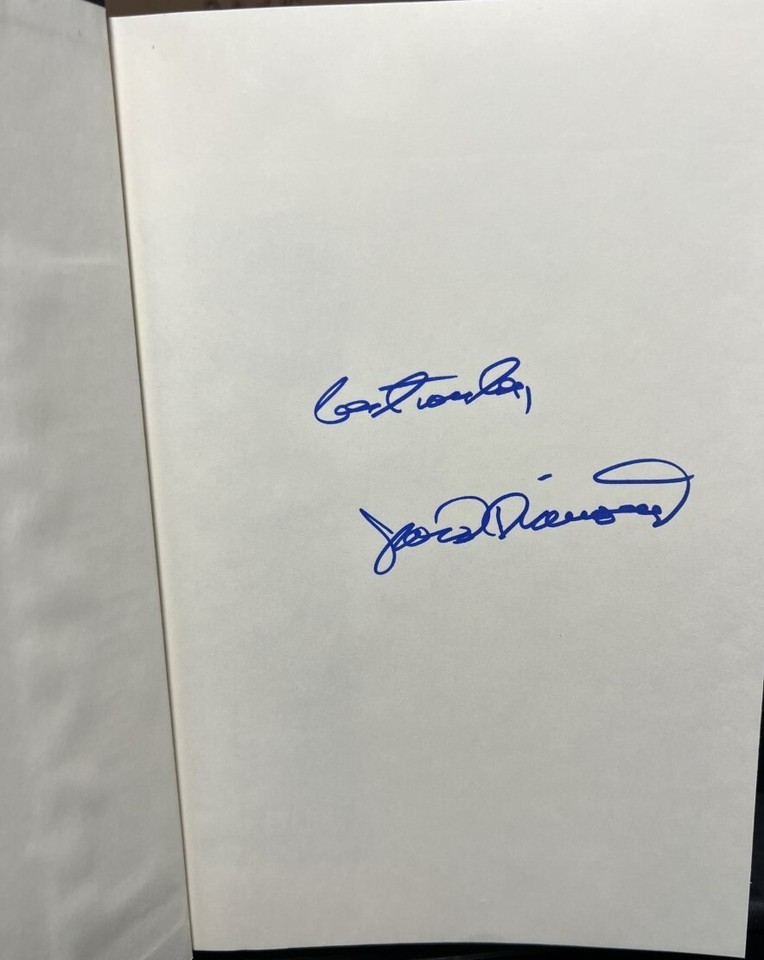 Best wishes,
Jared Diamond